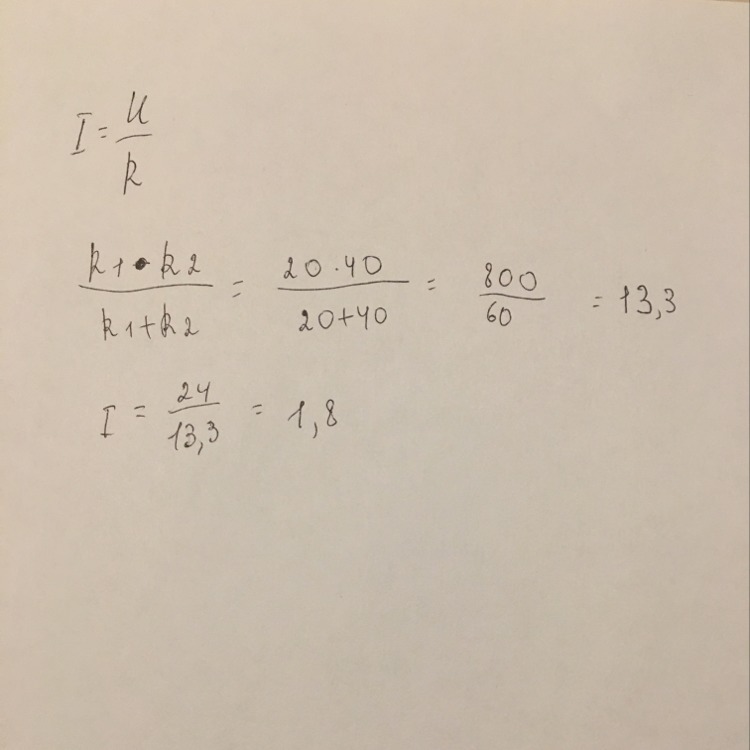 I = U/R
R1 • R2 / R1+R2 = 20·40 / 20+40 = 800/60 = 13,3
I = 24/13,3 = 1,8